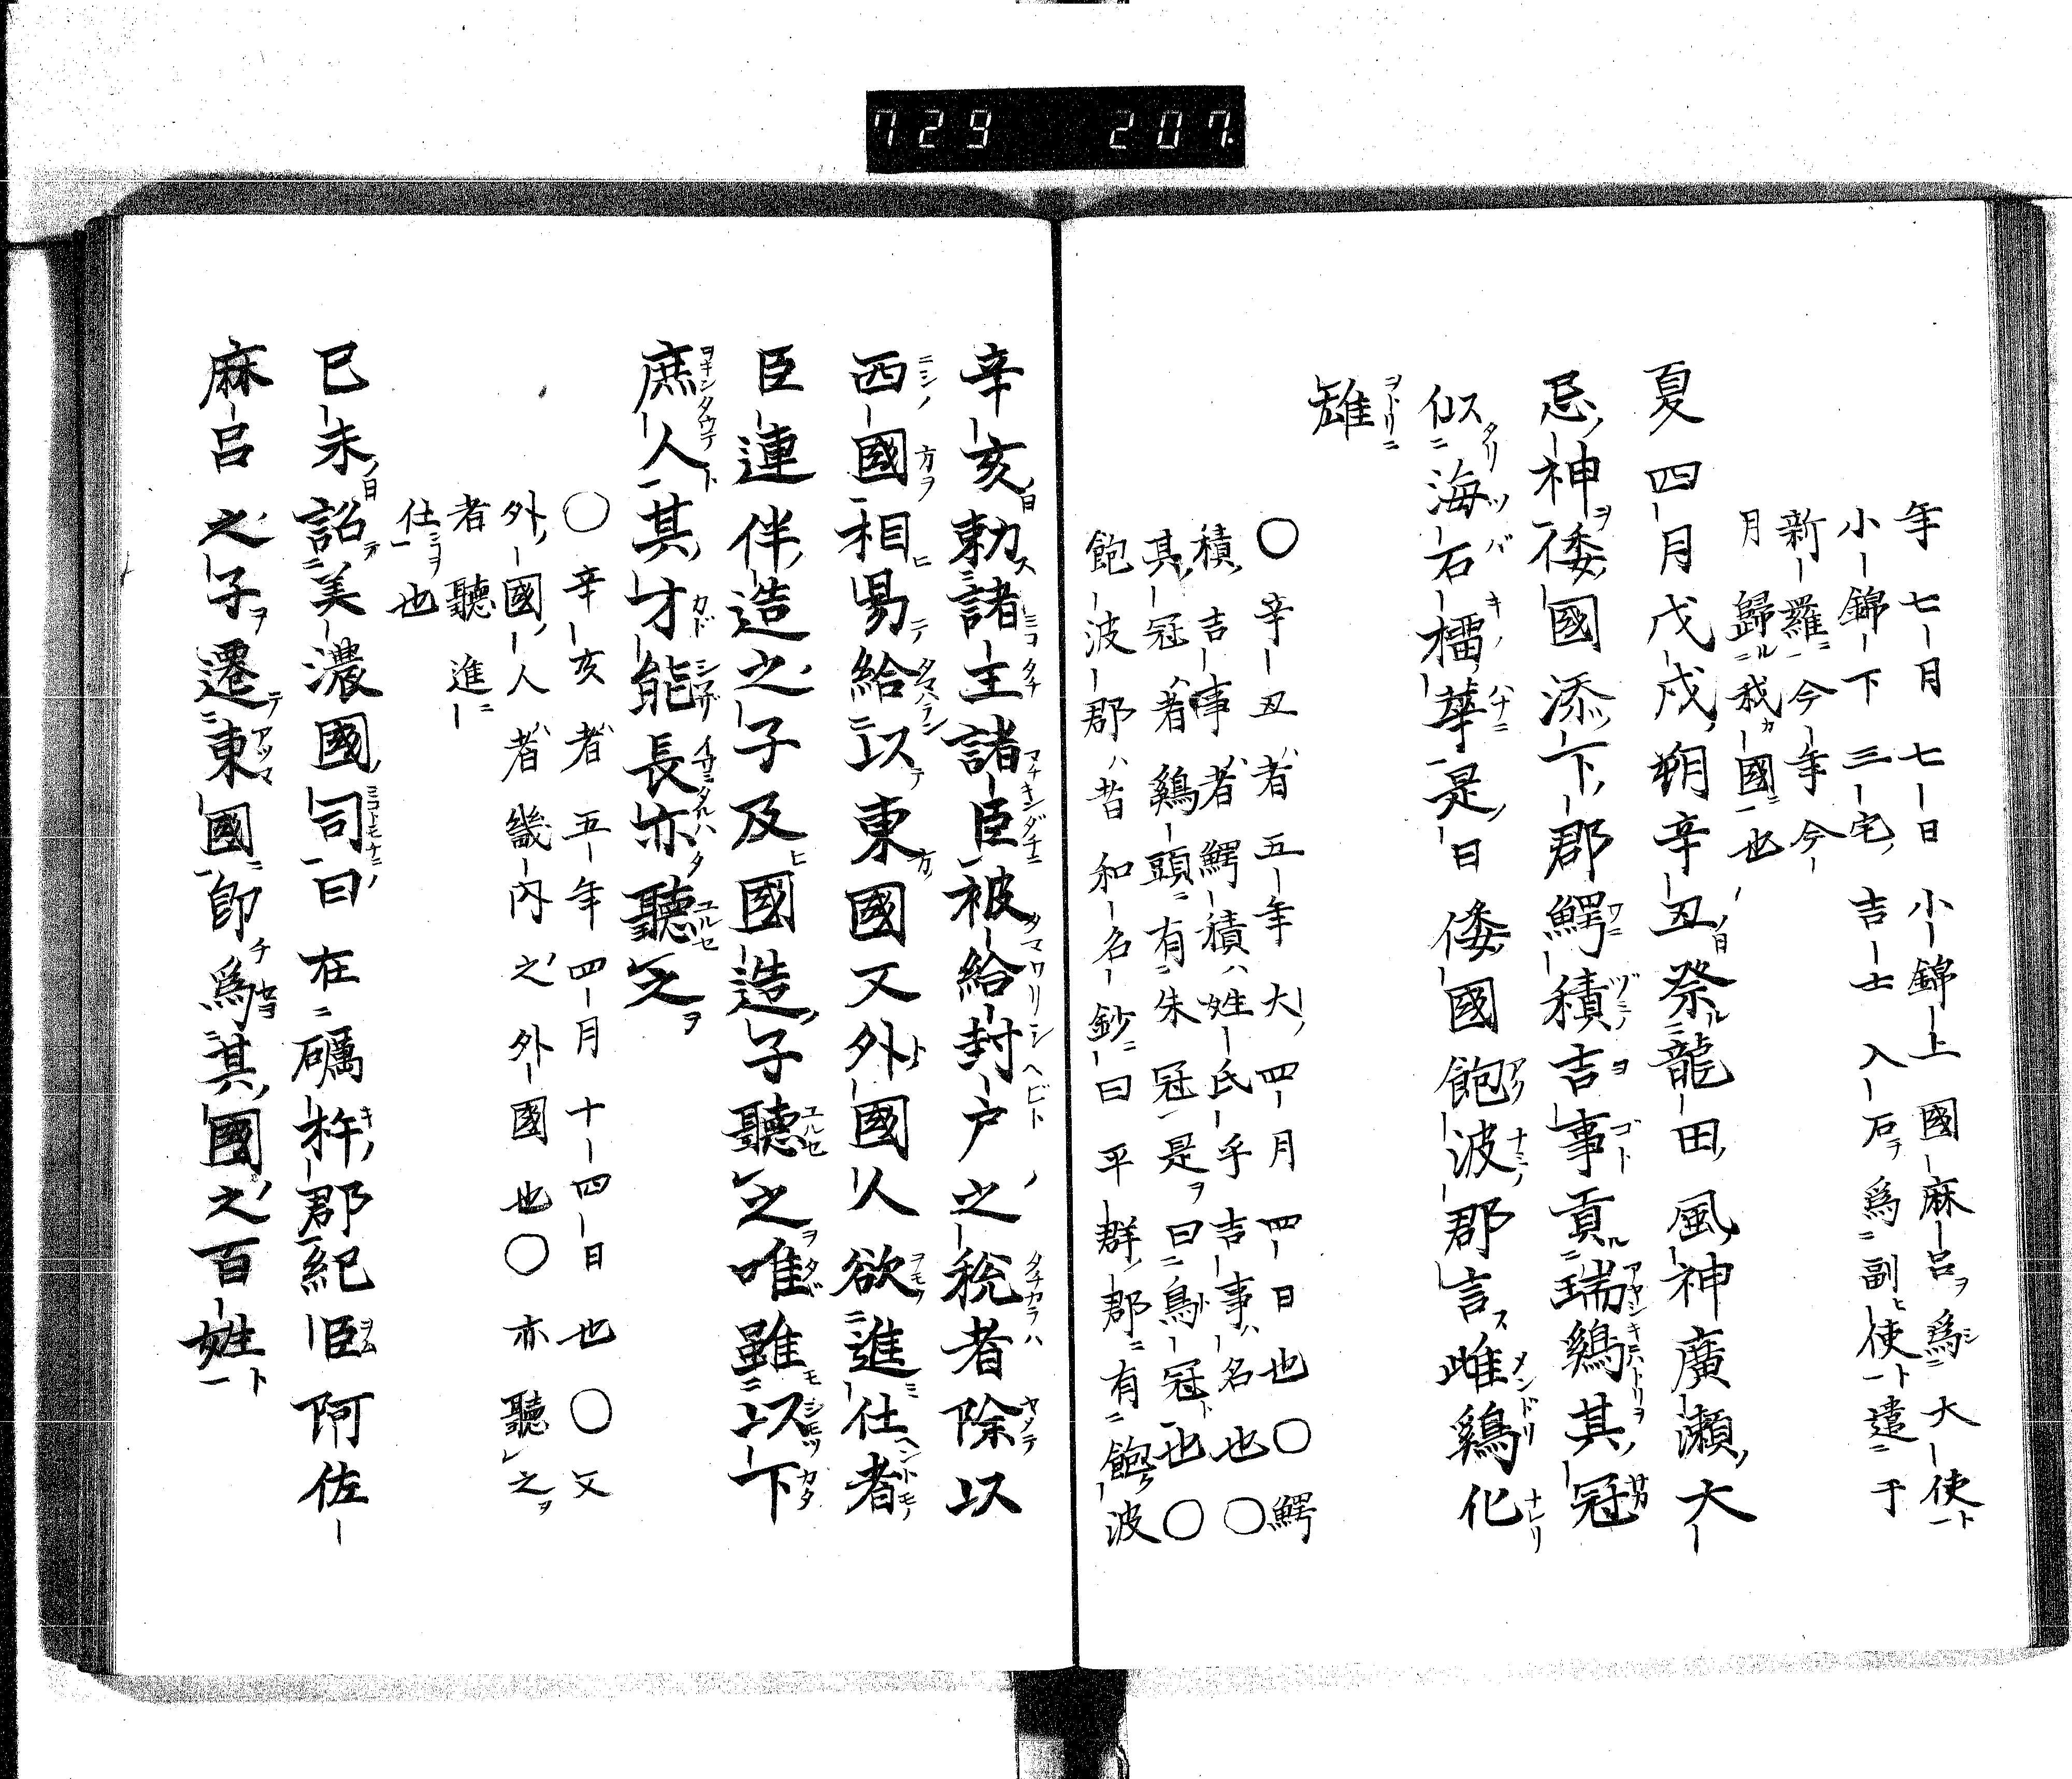 729 207
年七月七日小錦上國麻呂ヲ為シ大使ト
小錦下三宅吉士入石ヲ為副ヒ使ト遣于
新羅ニ今年今
月歸ル我カ國ニ也
夏四月戊戌朔辛丑ノ日祭ル龍田風神廣瀬大
忌ノ神ヲ倭國添ツ下郡鰐積吉事貢ル瑞鷄其冠
似海石榴華是日倭國飽波郡言ス雌鷄化
雄
〇辛丑者五年大四月四日也〇鰐
積吉事者鰐積ハ姓氏乎吉事ハ名也〇
其冠者鷄頭ニ有朱冠是ヲ曰鳥冠ト也〇
飽波郡ハ昔和名鈔ニ曰平群郡ニ有飽波
辛亥日勅ス諸王諸臣被給封戸之税者除以
西國相易テ給以テ東國又外國人欲進仕者
臣連伴造之子及ヒ國造子聽之唯雖以下
庶人其才能長亦聽之ヲ
〇辛亥者五年四月十四日也〇又
外國人者畿内之外國也〇亦聽之ヲ
者聽進
仕ヲ也
己未ノ日詔テ美濃國司曰在礪杵郡紀臣阿佐
麻呂之子ヲ遷テ東國ニ即チ為其國之百姓ト